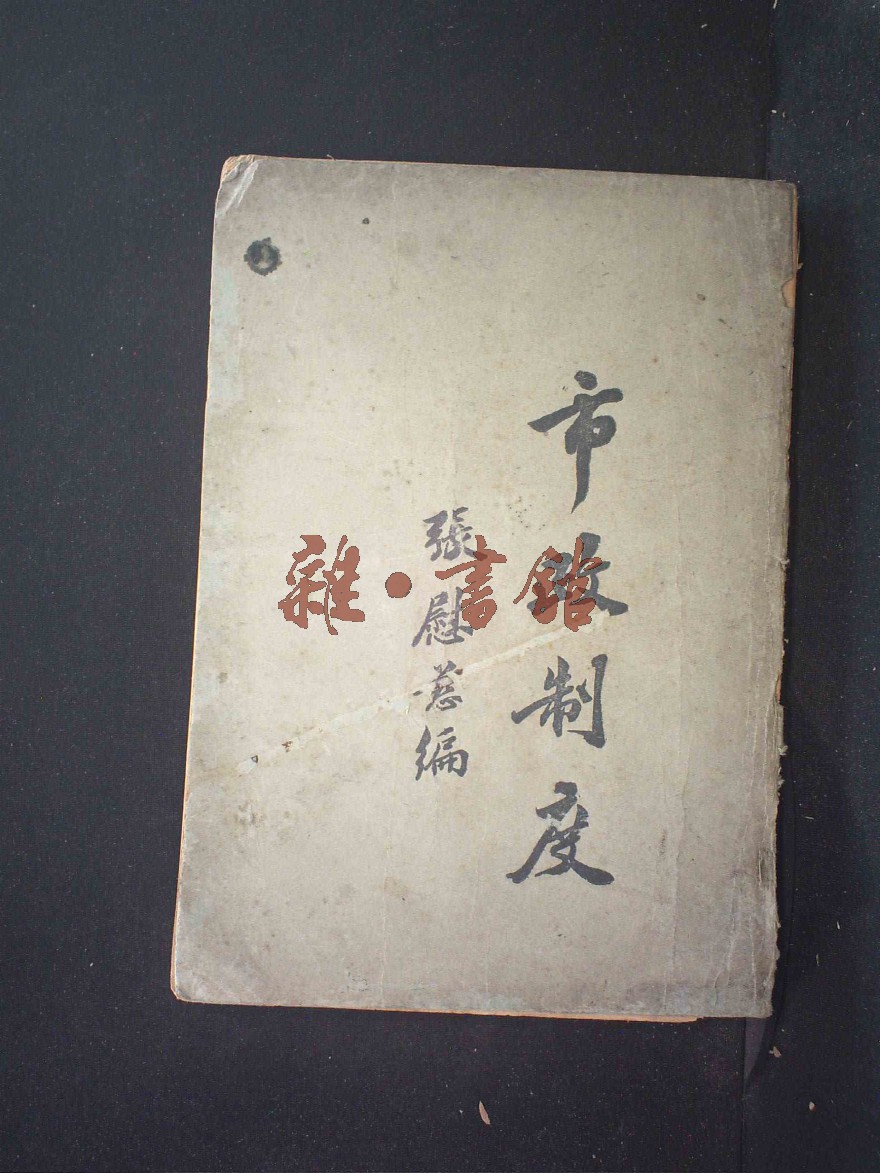 市政制度
張慰慈編
雜·書館